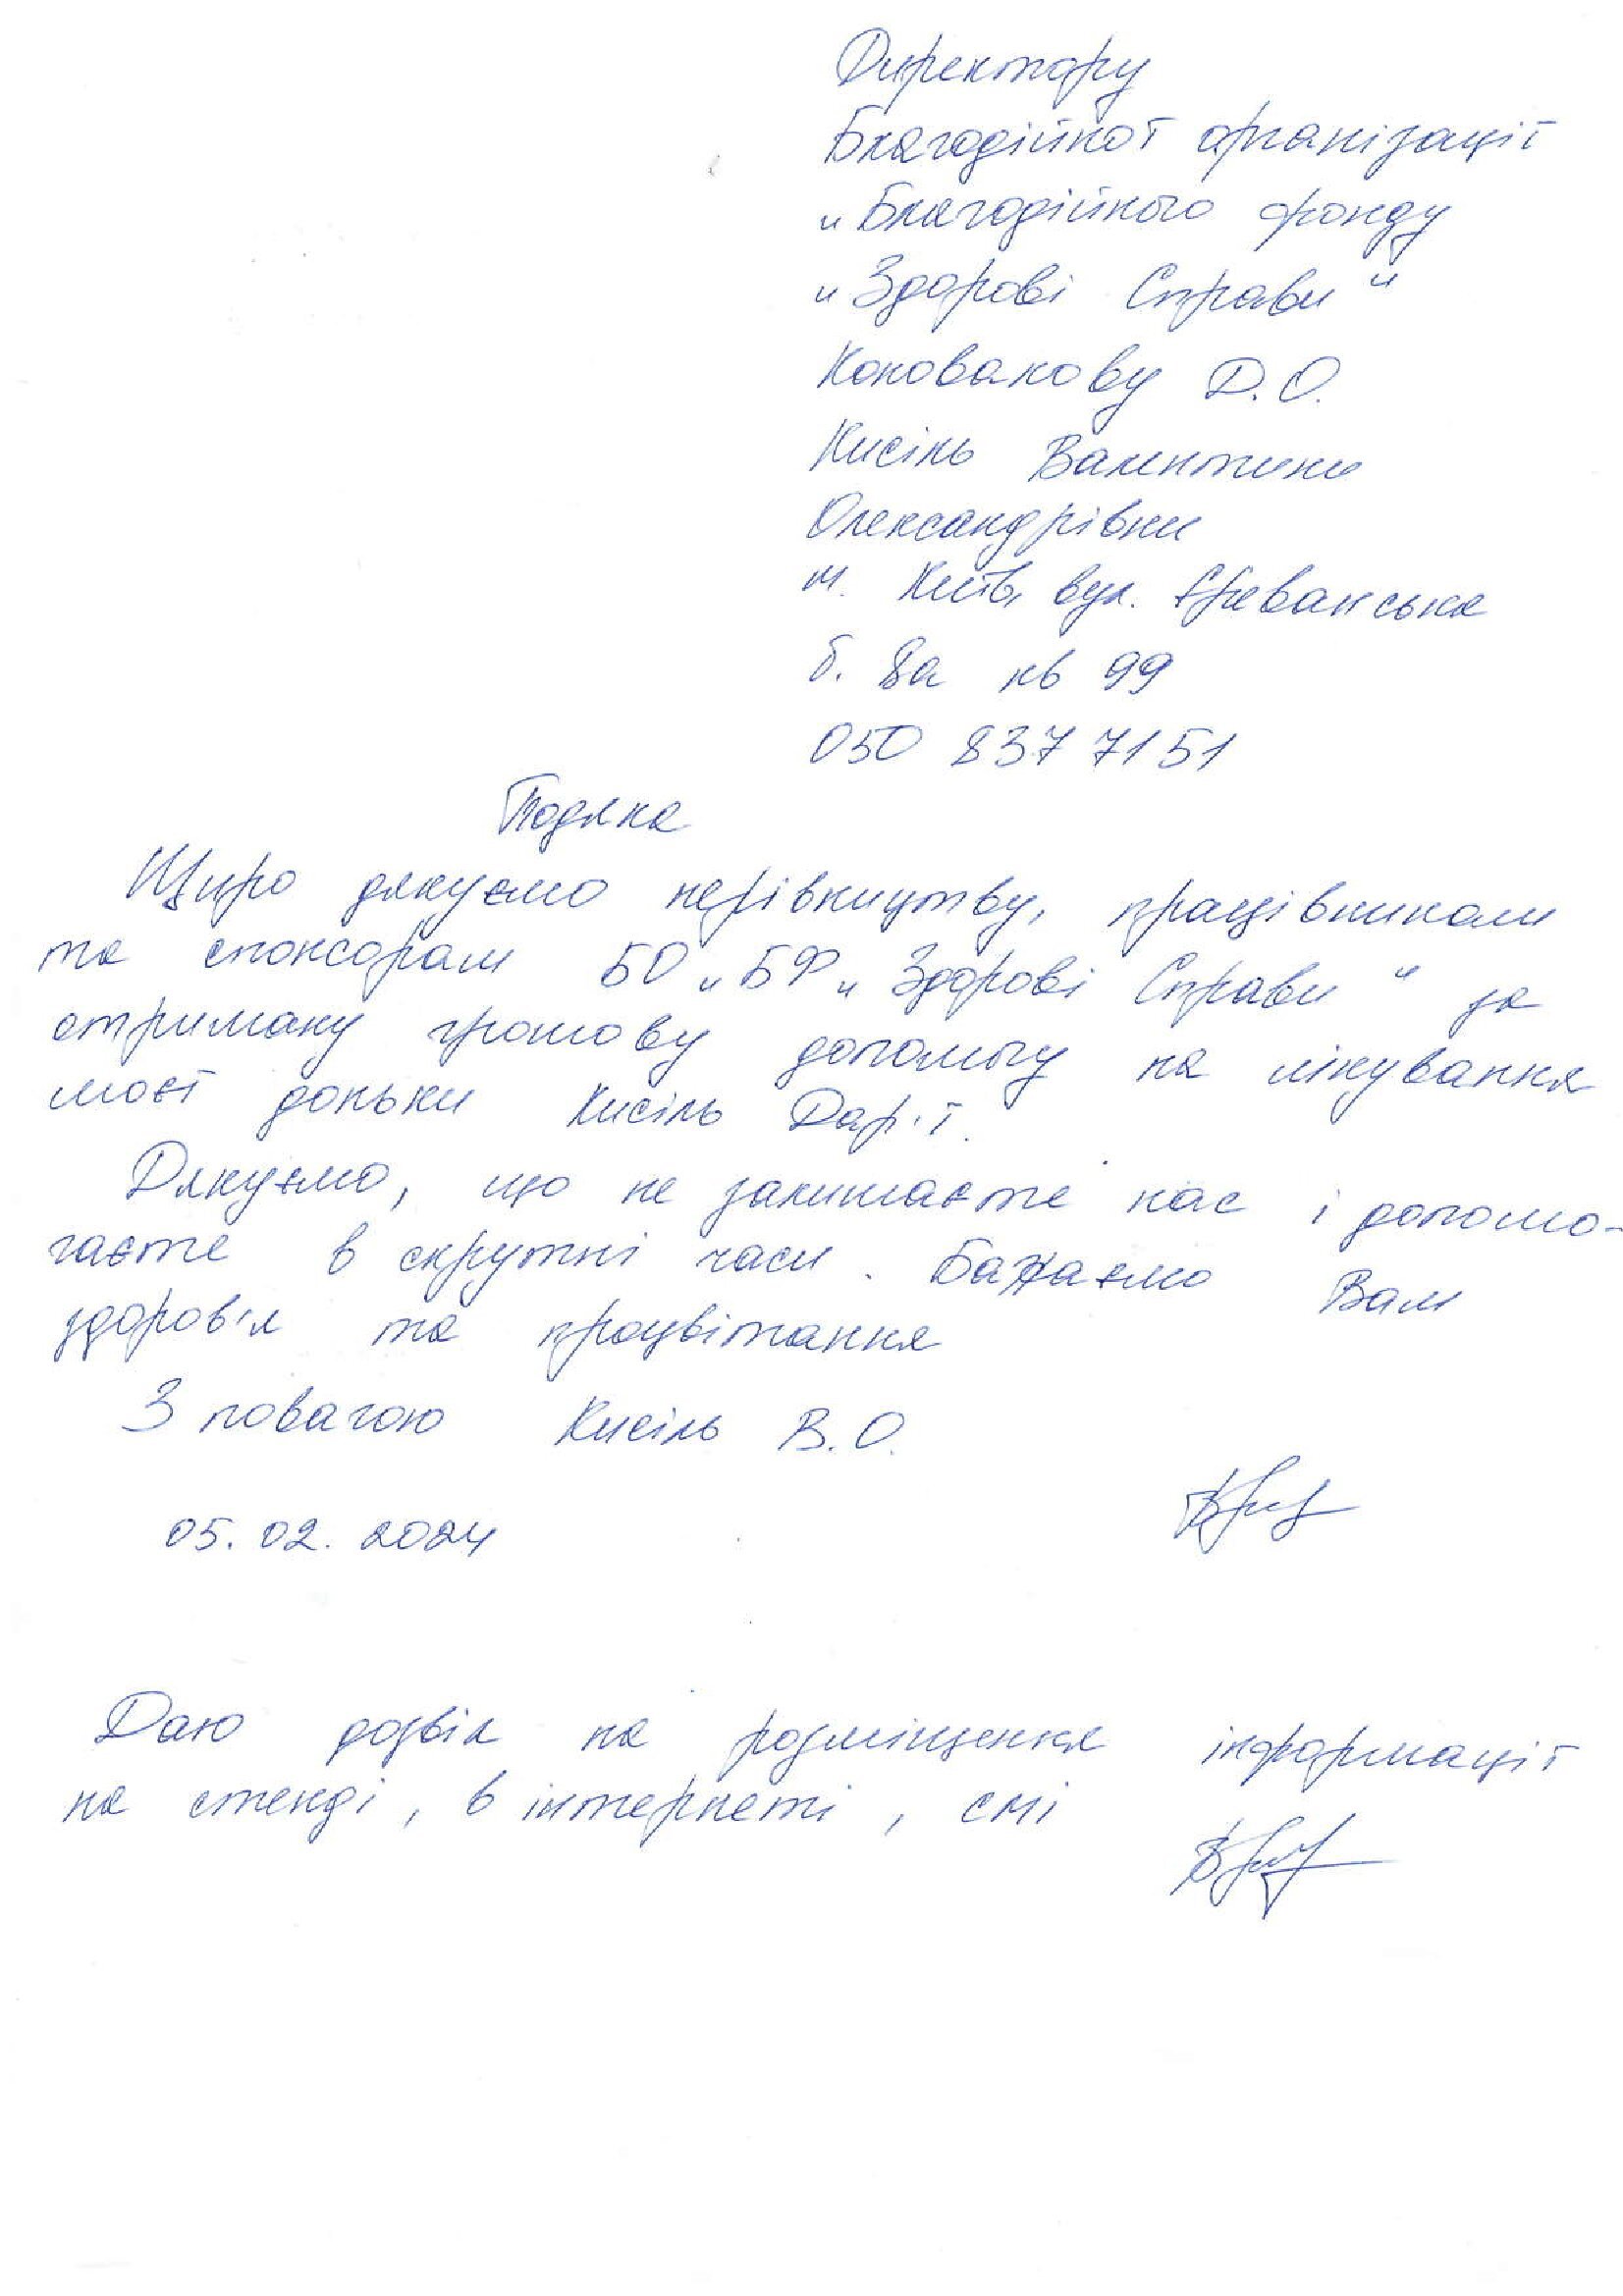 Директору
Благодійної організації
„Благодійного фонду
„Здорові Справи"
Коновалову Д.О.
Кисіль Валентини
Олександрівни
м. Київ, вул. Єреванська
б. 8а кв 99
050 837 71 51
Подяка
Щиро дякуємо керівництву, працівникам
та спонсорам БО „БФ „Здорові Справи" за
отриману грошову допомогу на лікування
моєї доньки Кисіль Дар'ї.
Дякуємо, що не залишаєте нас і допомо-
гаєте в скрутні часи. Бажаємо Вам
здоров'я та процвітання
З повагою Кисіль В.О.
05.02.2024
Даю дозвіл на розміщення інформації
на стенді, в інтернеті, смі